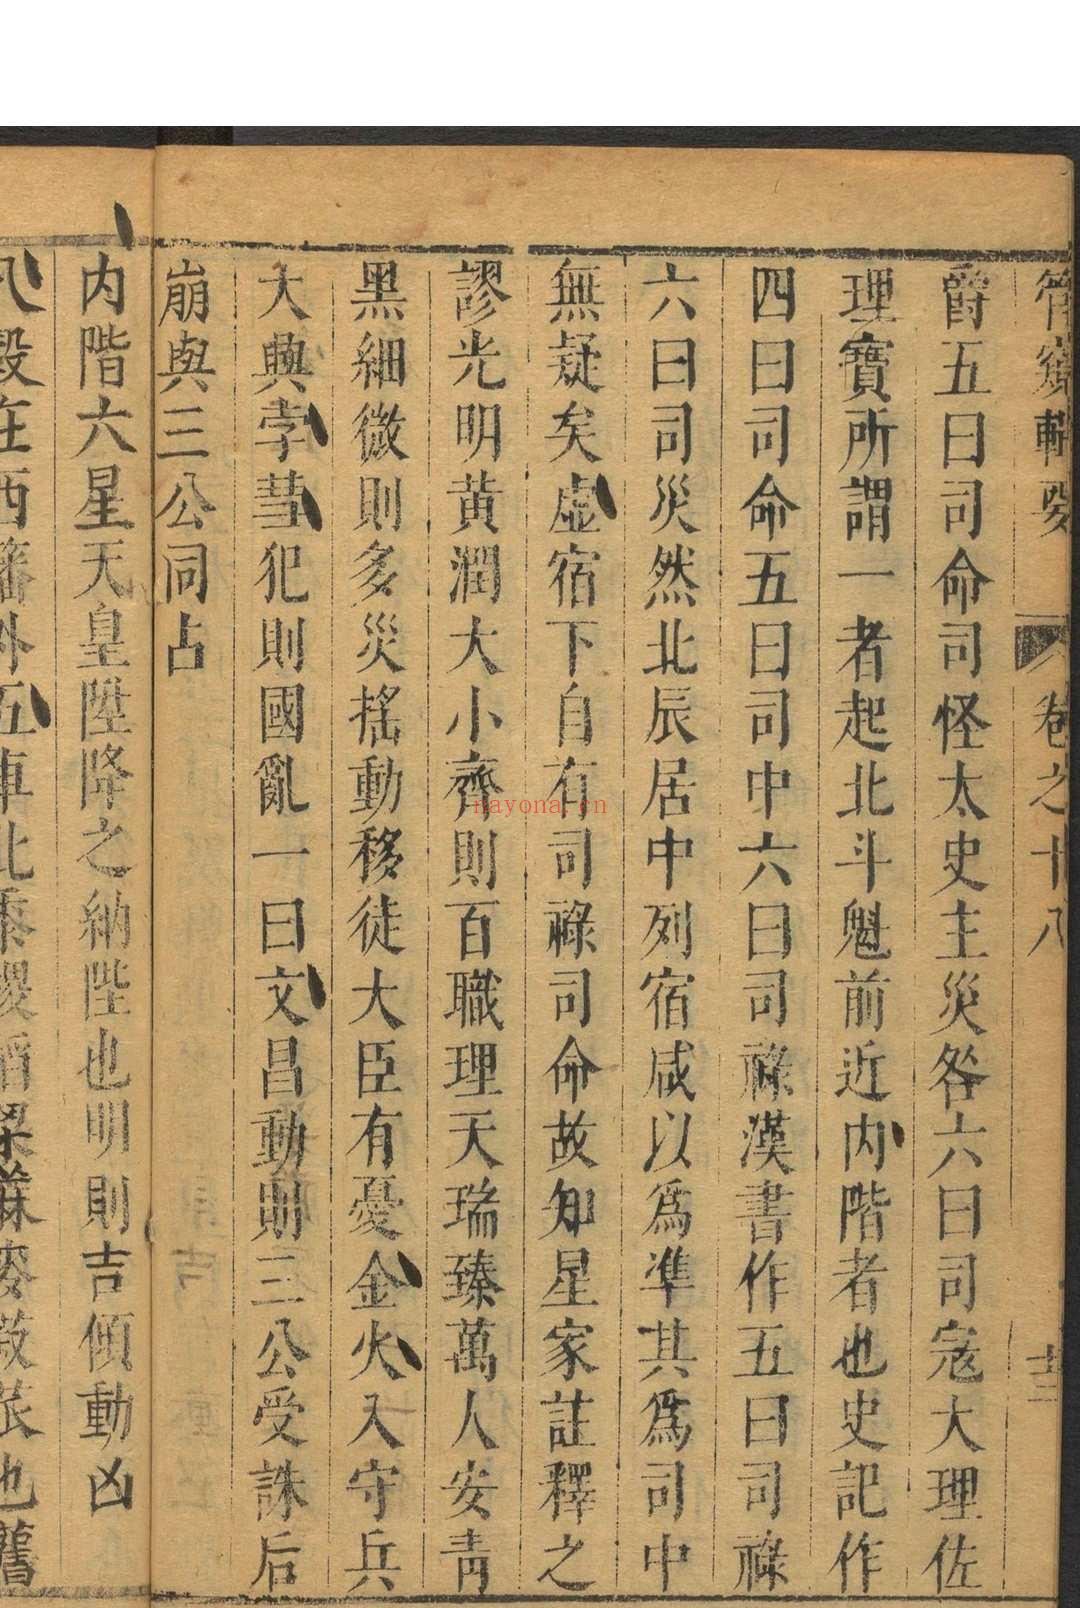 管窺輯要 卷之十八 十三
爵五曰司命司怪太史主災咎六曰司寇大理佐
理寶所謂一者起北斗魁前近内階者也史記作
四曰司命五曰司中六曰司祿漢書作五曰司祿
六曰司災然北辰居中列宿咸以爲準其爲司中
無疑矣虛宿下自有司祿司命故知星家註釋之
謬光明黃潤大小齊則百職理天瑞臻萬人安青
黑細微則多災搖動移徒大臣有憂金火入守兵
大興孛彗犯則國亂一曰文昌動則三公受誅后
崩與三公同占
内階六星天皇陞降之納陛也明則吉傾動凶
八穀在西籓外五車北黍稷稻粱麻麥菽也舊
nayona.cn